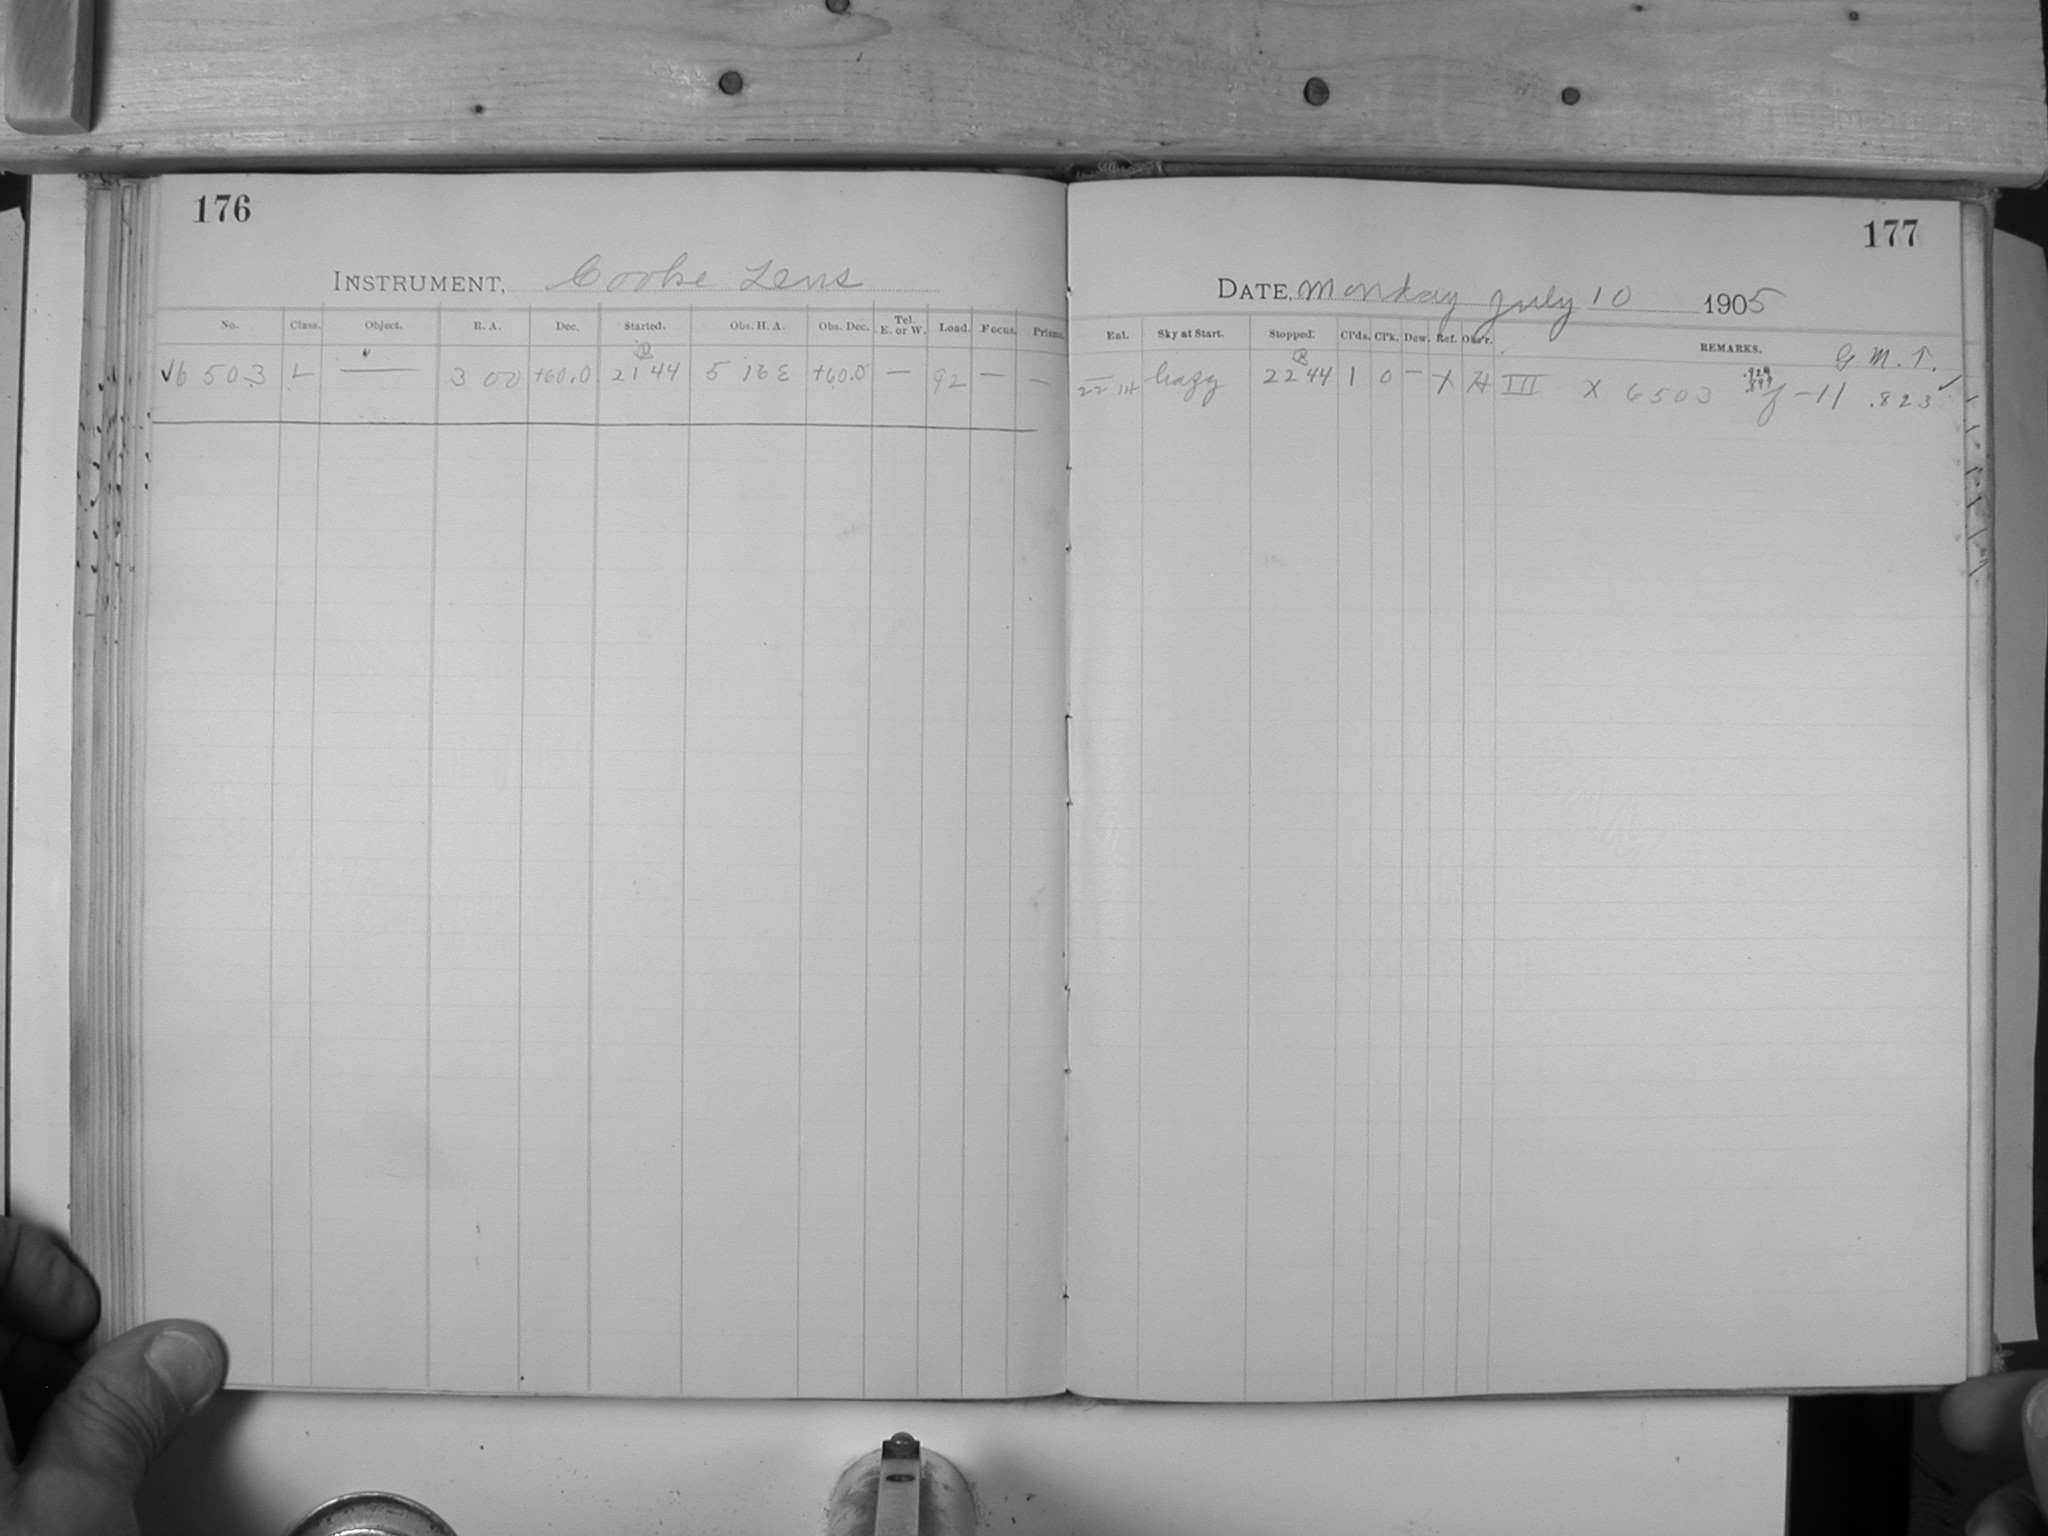 176
INSTRUMENT, Cooke Lens
No. Class. Object. R. A. Dec. Started. Obs. H. A. Obs. Dec. Tel. E. or W. Load. Focus. Prisms.
√6503 L — 3 00 +60.0 21 44 5 16 E +60.0 — 92 — —
177
DATE, Monday July 10 1905
Ent. Sky at Start. Stopped. Cl'ds. Cl'k. Dew. Ref. Obs'r. REMARKS. G. M. T.
22 14 hazy 22 44 1 0 — X H III X 6503 -11 .823 ✓